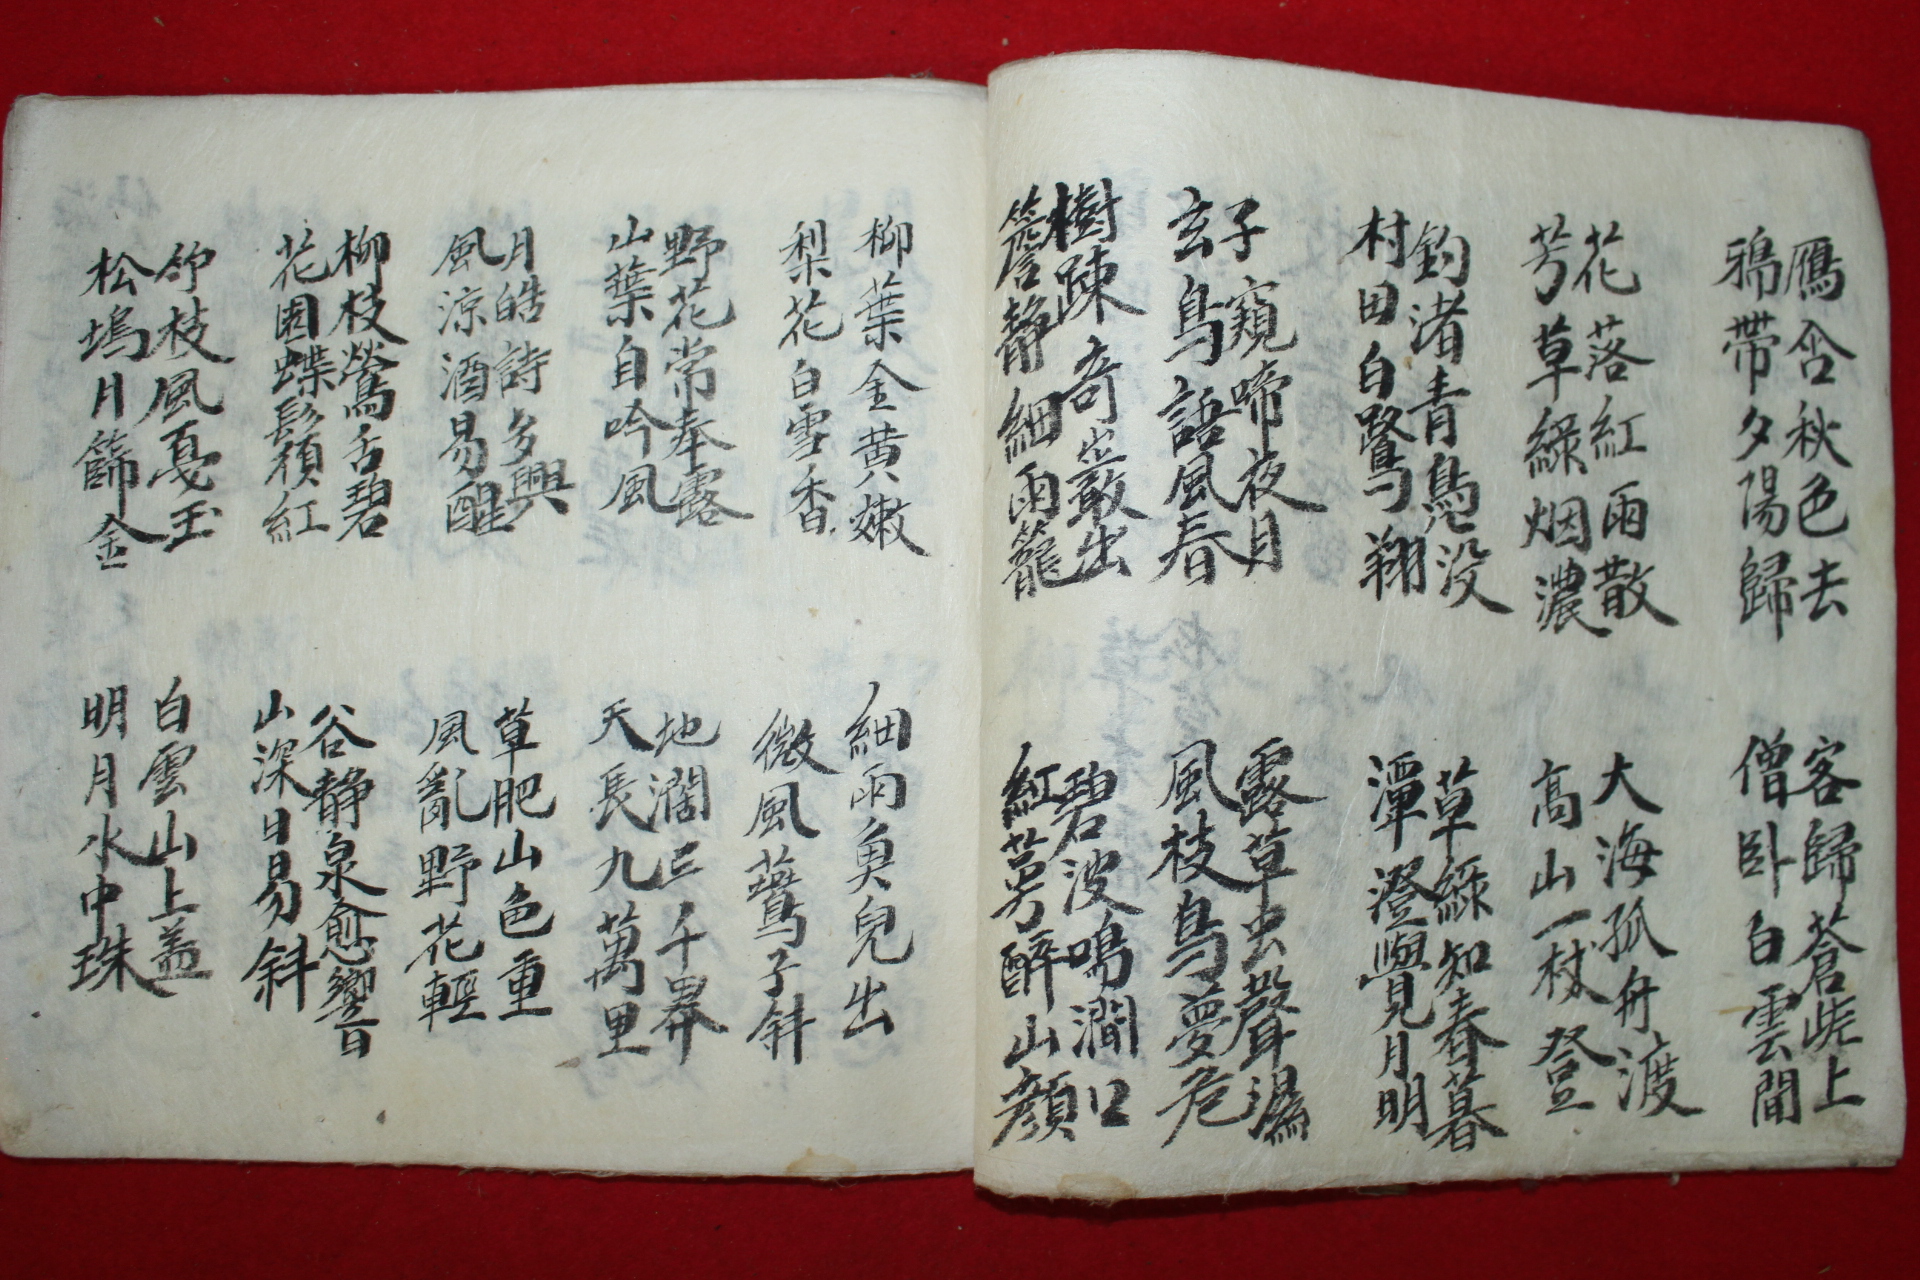 鴈含秋色去
鴉帶夕陽歸
花落紅雨散
芳草綠烟濃
釣渚青鳧没
村田白鷺翔
子窺啼夜月
玄鳥語風春
樹踈奇巖出
簷静細雨籠
客歸蒼崖上
僧卧白雲間
大海孤舟渡
高山一杖登
草綠知春暮
潭澄覺月明
露草虫聲濕
風枝鳥夢危
碧波鳴澗口
紅醉山顔
柳葉金黄嫩
梨花白雪香
野花常奉露
山葉自吟風
月皓詩多興
風涼酒易醒
柳枝鶯舌碧
花園蝶鬚紅
竹枝風戞玉
松塢月篩金
細雨魚兒出
微風鷰子斜
地濶三千界
天長九萬里
草肥山色重
風亂野花輕
谷静泉愈響
山深日易斜
白雲山上盖
明月水中珠